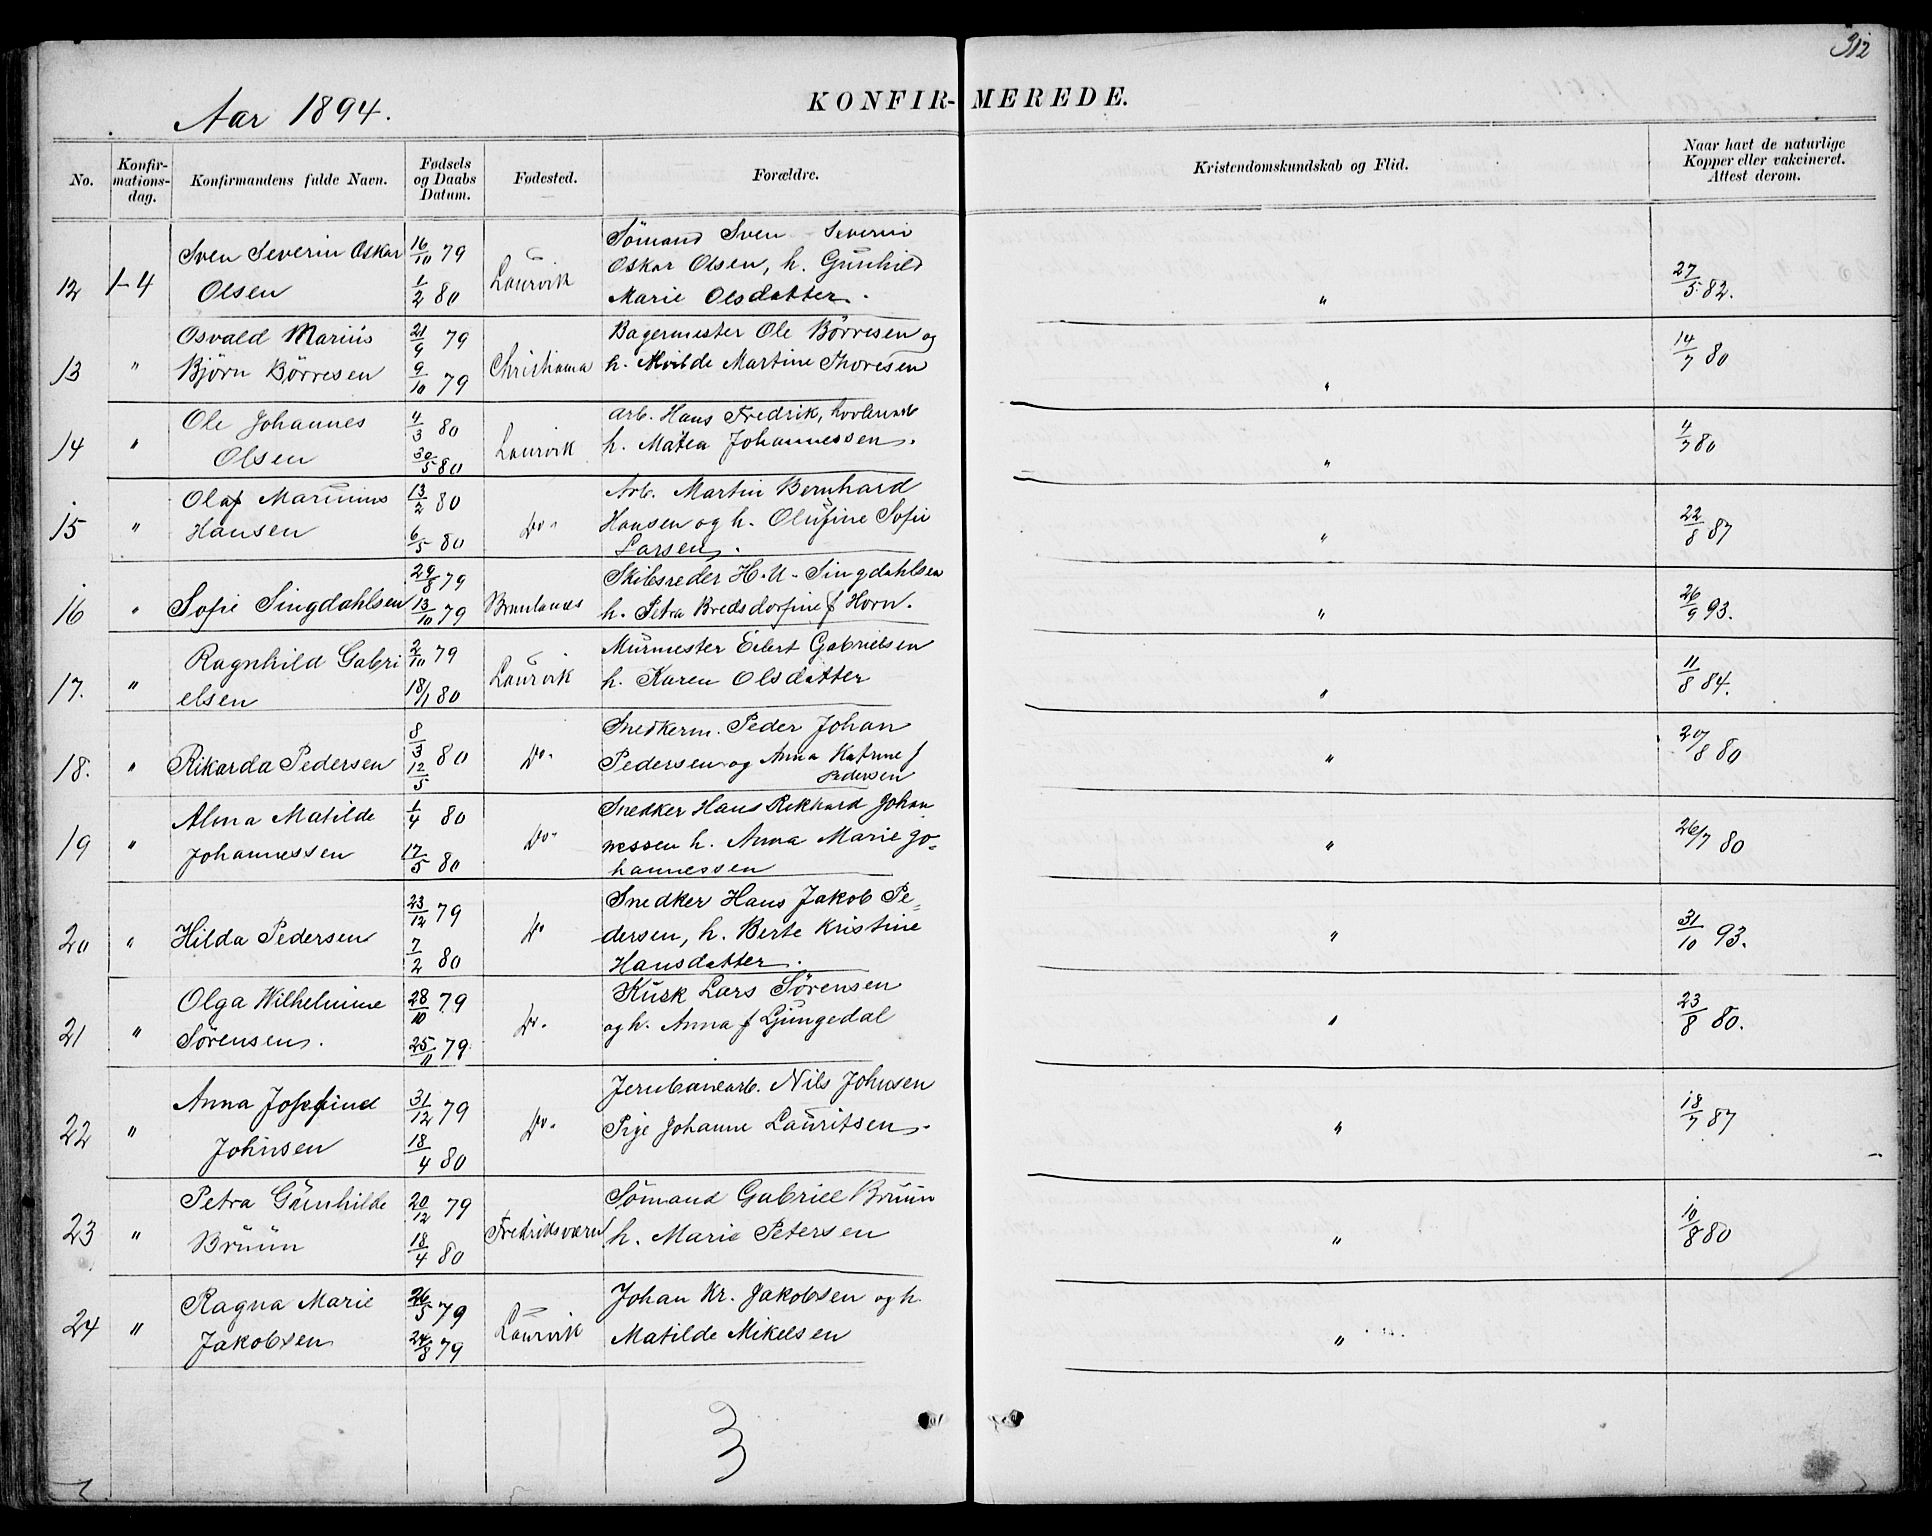 312
Aar 1894.
KONFIR-MEREDE.
No.
Konfir-
mations-
dag.
Konfirmandens fulde Navn.
Fødsels
og Daabs
Datum.
Fødested.
Forældre.
Kristendomskundskab og Flid.
Naar havt de naturlige
Kopper eller vakcineret.
Attest derom.
12 1-4 Sven Severin Oskar
Olsen
16/10 79
1/2 80
Laurvik
Sömand Sven Severin
Oskar Olsen, h. Gunhild
Marie Olsdatter.
"
27/5 82.
13 " Osvald Marius
Björn Börresen
21/9 79
9/10 79
Christiania
Bagermester Ole Börresen og
h. Martine Thoresen
"
14/7 80
14 " Ole Johannes
Olsen
4/3 80
30/5 80
Laurvik
Arb. Hans Fredrik,
h. Matea Johannessen.
"
4/7 80
15 " Olaf Marinius
Hansen
13/2 80
6/5 80
Do.
Arb. Martin Bernhard
Hansen og h. Olufine Sofie
Larsen.
"
22/8 87
16 " Sofie Singdahlsen
29/8 79
13/10 79
Brunlanæs
Skibsreder H. U. Singdahlsen
h. Petra Bredsdorfine f Horn.
"
26/9 93.
17. " Ragnhild Gabri
elsen
2/10 79
18/1 80
Laurvik
Murmester Eilert Gabrielsen
h. Karen Olsdatter
"
11/8 84.
18. " Rikarda Pedersen
8/3 80
12/5
Do.
Snedkerm. Peder Johan
Pedersen og Anna Katrine f
Pedersen
"
20/8 80
19 " Alma Matilde
Johannessen
1/4 80
17/5 80
Do.
Snedker Hans Rikhard Johan
nessen h. Anna Marie Jo=
hannessen
"
26/7 80
20 " Hilda Pedersen
23/12 79
7/2 80
Do
Snedker Hans Jakob Pe=
dersen, h. Berte Kristine
Hansdatter.
"
31/10 93.
21 " Olga Wilhelmine
Sørensen.
28/10 79
25/11 79.
Do.
Kusk Lars Sørensen
og h. Anna f Ljungedal
"
23/8 80.
22 " Anna Josefine
Johnsen
31/12 79
18/4 80
Do.
Jernbanearb. Nils Johnsen
Pige Johanne Lauritsen.
"
18/7 87
23 " Petra Gunhilde
Bruun
20/12 79
18/4 80
Fredriksværn
Sömand Gabriel Bruun
h. Marie Petersen
"
10/8 80
24 " Ragna Marie
Jakobsen
26/5 79
24/8 79
Laurvik
Johan Kr. Jakobsen og h.
Matilde Mikelsen
"
3